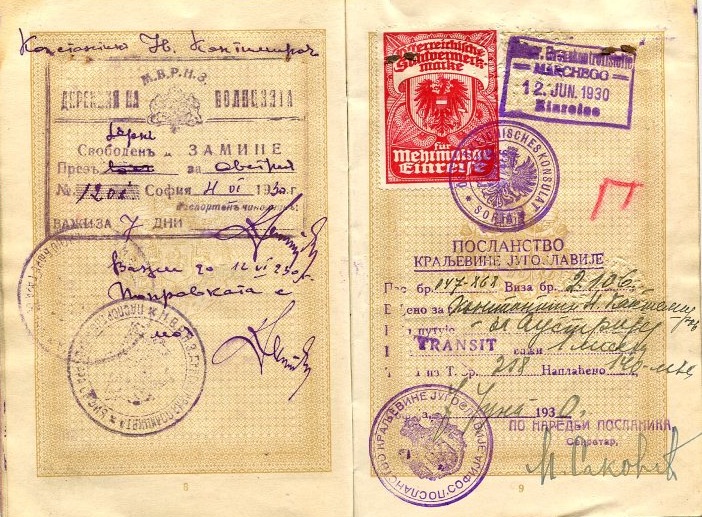 Константинъ Ив. Кантимиръ
М.В.Р.Н.З.
ДИРЕКЦИЯ НА ПОЛИЦИЯТА
Свободенъ да ЗАМИНЕ
Презъ за Австрия
№ 1201 София 4 VI 1930 г.
Паспортенъ чиновникъ:
ВАЖИ ЗА 7 ДНИ
Важи до 12 VI 930
Поправката е
моя
8
Österreichische
Sichtvermerk
marke
für
Mehrmalige
Einreise
MARCHEGG
12. JUN. 1930
Einreise
KONSULAT
SOFIA
П
ПОСЛАНСТВО
КРАЉЕВИНЕ ЈУГОСЛАВИЈЕ
Пов. бр. 047-868 Виза бр. 2106
за Константин И. Кантемир
путује за Аустрију
TRANSIT важи 1 месец
Такса из Т. Бр. 208 Наплаћено
Јуна 1930.
ПО НАРЕДБИ ПОСЛАНИКА
Секретар,
ПОСЛАНСТВО КРАЉЕВИНЕ ЈУГОСЛАВИЈЕ СОФИЈА
9